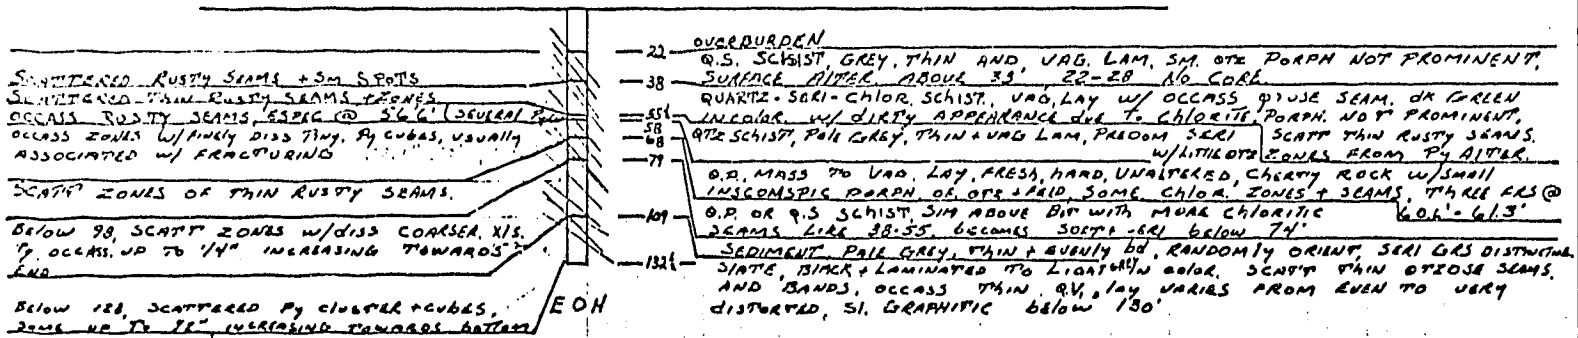 SCATTERED RUSTY SEAMS + SM SPOTS
SCATTERED THIN RUSTY SEAMS + ZONES
OCCASS RUSTY SEAMS, ESPEC @ 56.6' (SEVERAL
OCCASS ZONES W/ FINELY DISS TINY, Py CUBES, USUALLY
ASSOCIATED W/ FRACTURING
SCATT ZONES OF THIN RUSTY SEAMS.
BELOW 98, SCATT ZONES W/DISS COARSER, XLS.
Py OCCASS. UP TO 1/4" INCREASING TOWARDS
END
BELOW 128, SCATTERED Py CLUSTER + CUBES,
SOME UP TO INCREASING TOWARDS BOTTOM
EOH
22
38
55
58
68
79
109
132
OVERBURDEN
Q.S. SCHSIST, GREY, THIN AND, VAG. LAM, SM. QTZ PORPH NOT PROMINENT,
SURFACE ALTER ABOVE 33' 22-28 NO CORE
QUARTZ-SERI-CHLOR, SCHIST, VAG, LAY W/ OCCASS SEAM. DK GREEN
IN COLOR. W/ DIRTY APPEARANCE DUE TO CHLORITE, PORPH. NOT PROMINENT,
SCATT THIN RUSTY SEAMS.
ZONES FROM Py ALTER.
QTZ SCHIST, PALE GREY, THIN + VAG LAM, PREDOM SERI
W/LITTLE QTZ
Q.P. MASS TO VAG. LAY, FRESH, HARD, UNALTERED, CHERTY ROCK W/SMALL
INSCOMSPIC PORPH. OF QTZ + FELD, SOME CHLOR. ZONES + SEAMS, THREE FRS @
60.6'-61.3'
Q.P. OR Q.S SCHIST, SIM ABOVE BIT WITH MORE CHLORITIC
SEAMS LIKE 38-55, BECOMES SOFT + SERI BELOW 74'
SEDIMENT PALE GREY, THIN + EVENLY bd, RANDOMLY ORIENT, SERI GRS DISTINCTIVE
SLATE, BLACK + LAMINATED TO LIGHT GREY IN COLOR. SCATT THIN QTZOSE SEAMS,
AND BANDS, OCCASS THIN Q.V., LAY VARIES FROM EVEN TO VERY
DISTORTED, SL. GRAPHITIC BELOW 130'